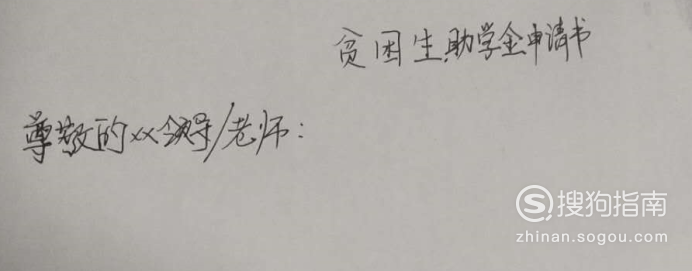 贫困生助学金申请书
尊敬的xx领导/老师：
搜狗指南
zhinan.sogou.com